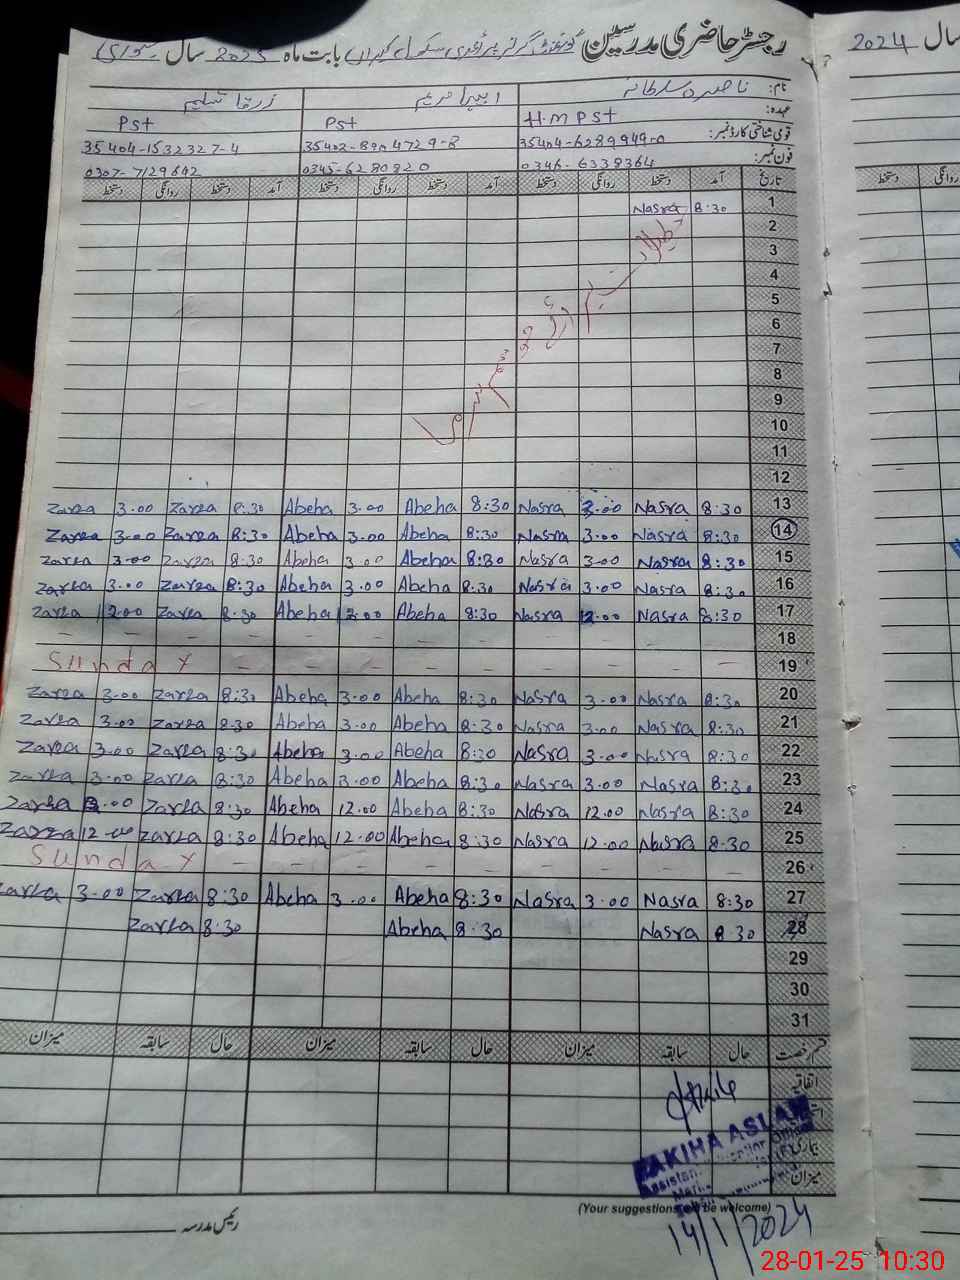 رجسٹر حاضری مدرسین گورنمنٹ گرلز پرائمری سکول بابت ماہ جنوری سال 2025
سال 2024
نام: ناصرہ سلطانہ ابیہا مریم زرقا تسلیم
عہدہ: H.M PST PST PST
قومی شناختی کارڈ نمبر: 35404-6289949-0 35404-1532327-4
فون نمبر: 0346-6338364 0345-6280820 0307-7129642
تاریخ آمد دستخط روانگی دستخط آمد دستخط روانگی دستخط آمد دستخط روانگی دستخط
دستخط روانگی
1 8:30 Nasra
2
3
4
5
6
7
8
9
10
11
12
13 8:30 Nasra 3.00 Nasra 8:30 Abeha 3.00 Abeha 8:30 Zarqa 3.00 Zarqa
14 8:30 Nasra 3.00 Nasra 8:30 Abeha 3.00 Abeha 8:30 Zarqa 3.00 Zarqa
15 8:30 Nasra 3.00 Nasra 8:30 Abeha 3.00 Abeha 8:30 Zarqa 3.00 Zarqa
16 8:30 Nasra 3.00 Nasra 8:30 Abeha 3.00 Abeha 8:30 Zarqa 3.00 Zarqa
17 8:30 Nasra 12.00 Nasra 8:30 Abeha 12.00 Abeha 8:30 Zarqa 12.00 Zarqa
18
19 Sunday
20 8:30 Nasra 3.00 Nasra 8:30 Abeha 3.00 Abeha 8:30 Zarqa 3.00 Zarqa
21 8:30 Nasra 3.00 Nasra 8:30 Abeha 3.00 Abeha 8:30 Zarqa 3.00 Zarqa
22 8:30 Nasra 3.00 Nasra 8:30 Abeha 3.00 Abeha 8:30 Zarqa 3.00 Zarqa
23 8:30 Nasra 3.00 Nasra 8:30 Abeha 3.00 Abeha 8:30 Zarqa 3.00 Zarqa
24 8:30 Nasra 12.00 Nasra 8:30 Abeha 12.00 Abeha 8:30 Zarqa Zarqa
25 8:30 Nasra 12.00 Nasra 8:30 Abeha 12.00 Abeha 8:30 Zarqa 12.00 Zarqa
26 Sunday
27 8:30 Nasra 3.00 Nasra 8:30 Abeha 3.00 Abeha 8:30 Zarqa 3.00 Zarqa
28 8:30 Nasra 8:30 Abeha 8:30 Zarqa
29
30
31
قسم رخصت حال سابقہ میزان حال سابقہ میزان حال سابقہ میزان
اتفاقیہ
بیماری
میزان
ZAKIHA ASLAM
Assistant
(Your suggestions will be welcome)
رئیس مدرسہ
14/1/2024
28-01-25 10:30